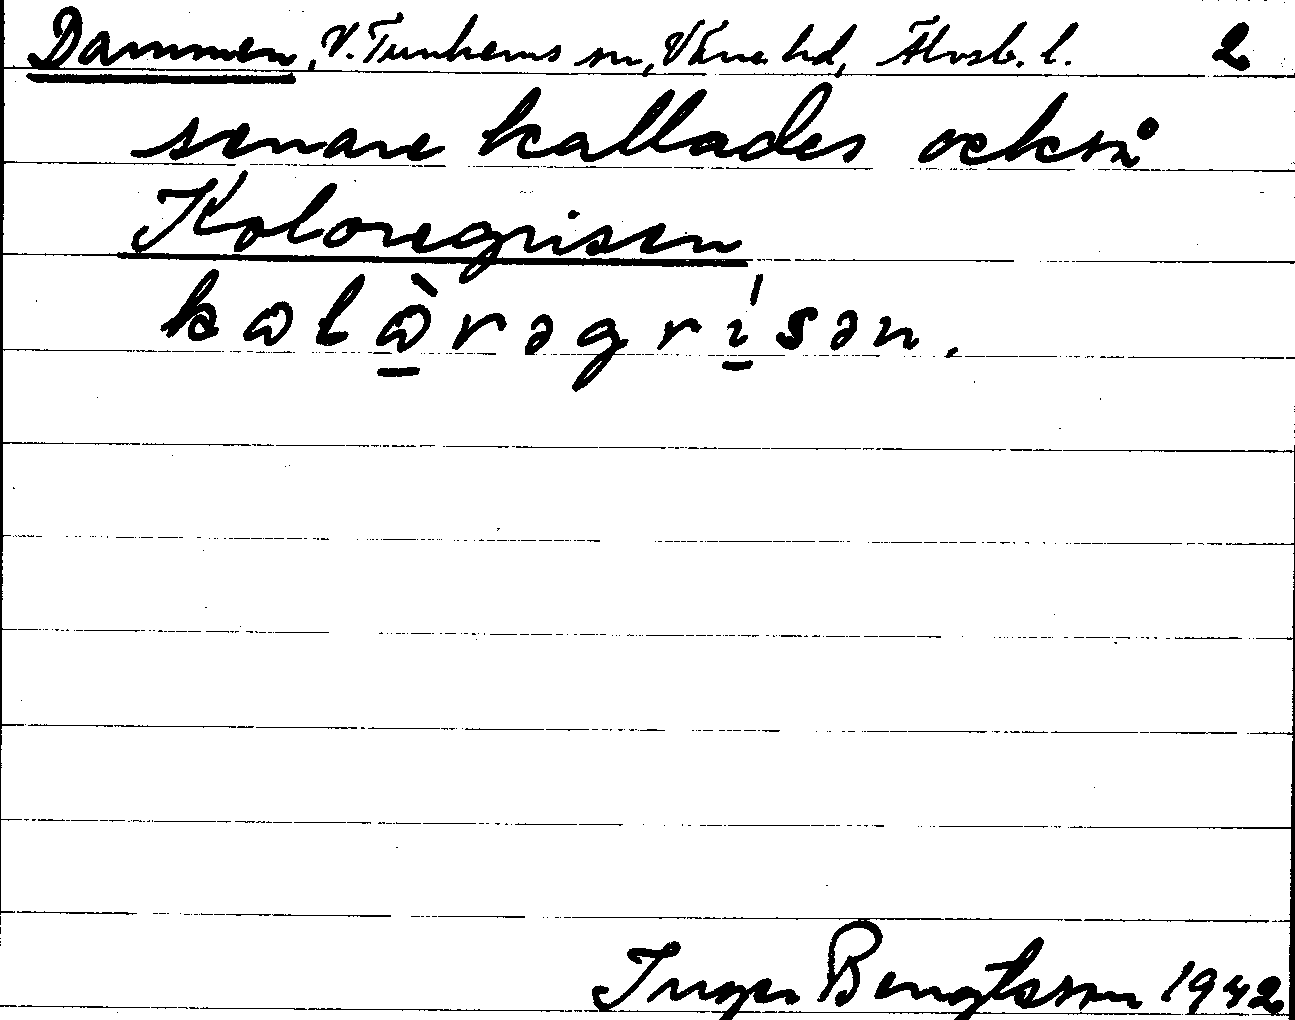 Dammen, V. Tunhems sn, Väne hd, Älvsb. l. 2
senare kallades också
Koloregrisen
kωlὼ̱rəgrḭ́sən.
Inger Bengtsson 1942